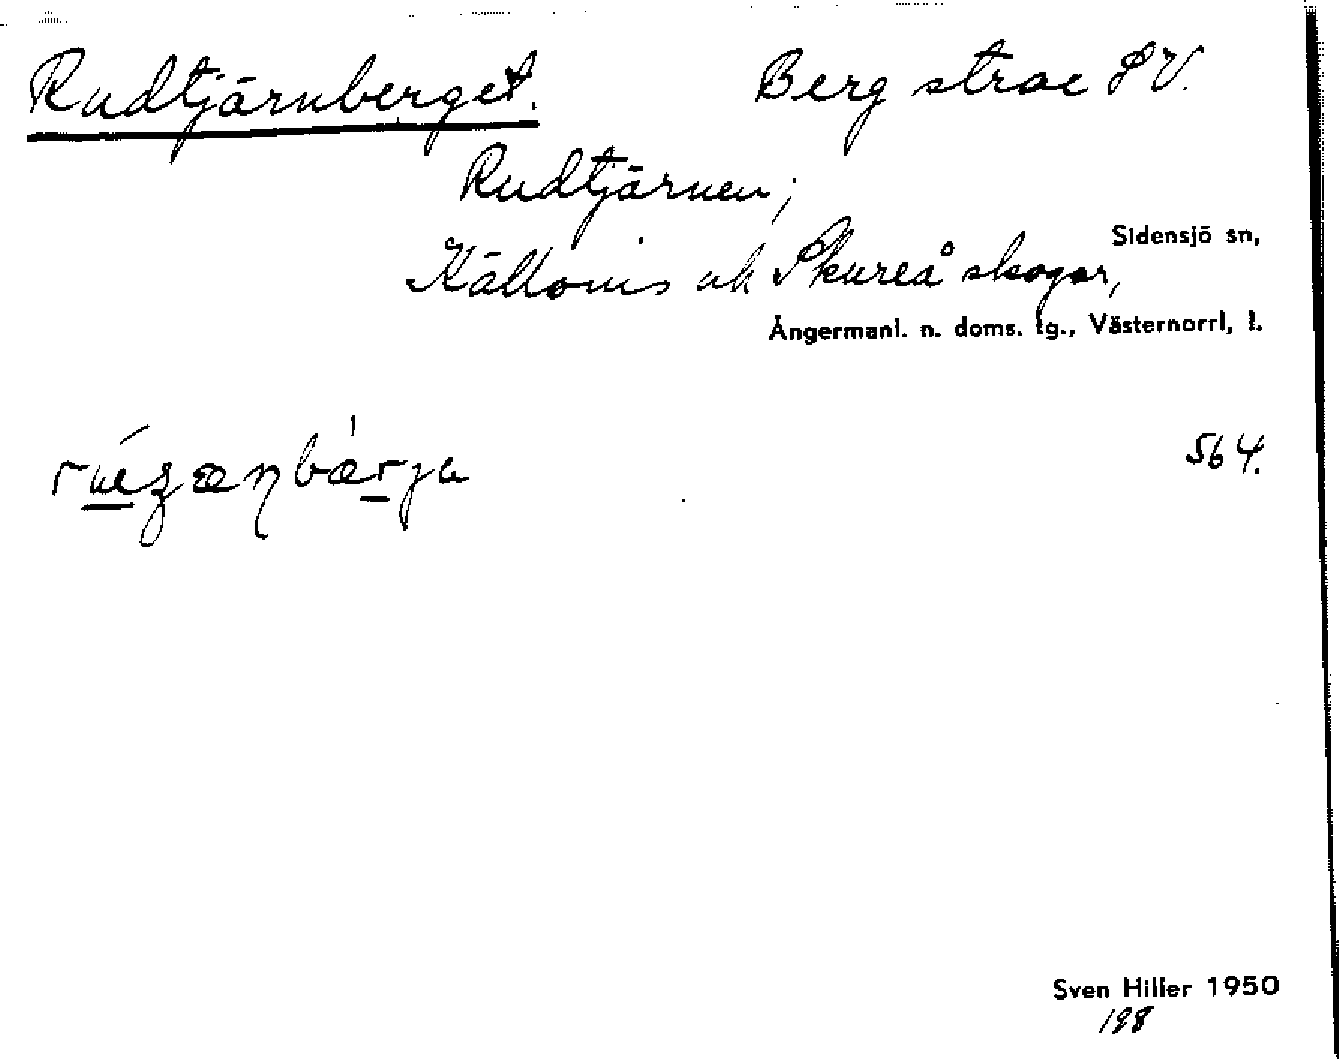 Rudtjärnberget. Berg strax SV.
Rudtjärnen;
Sidensjö sn,
och Skureå skogar,
Ångermanl. n. doms. tg., Västernorrl. l.
564.
Sven Hiller 1950
198